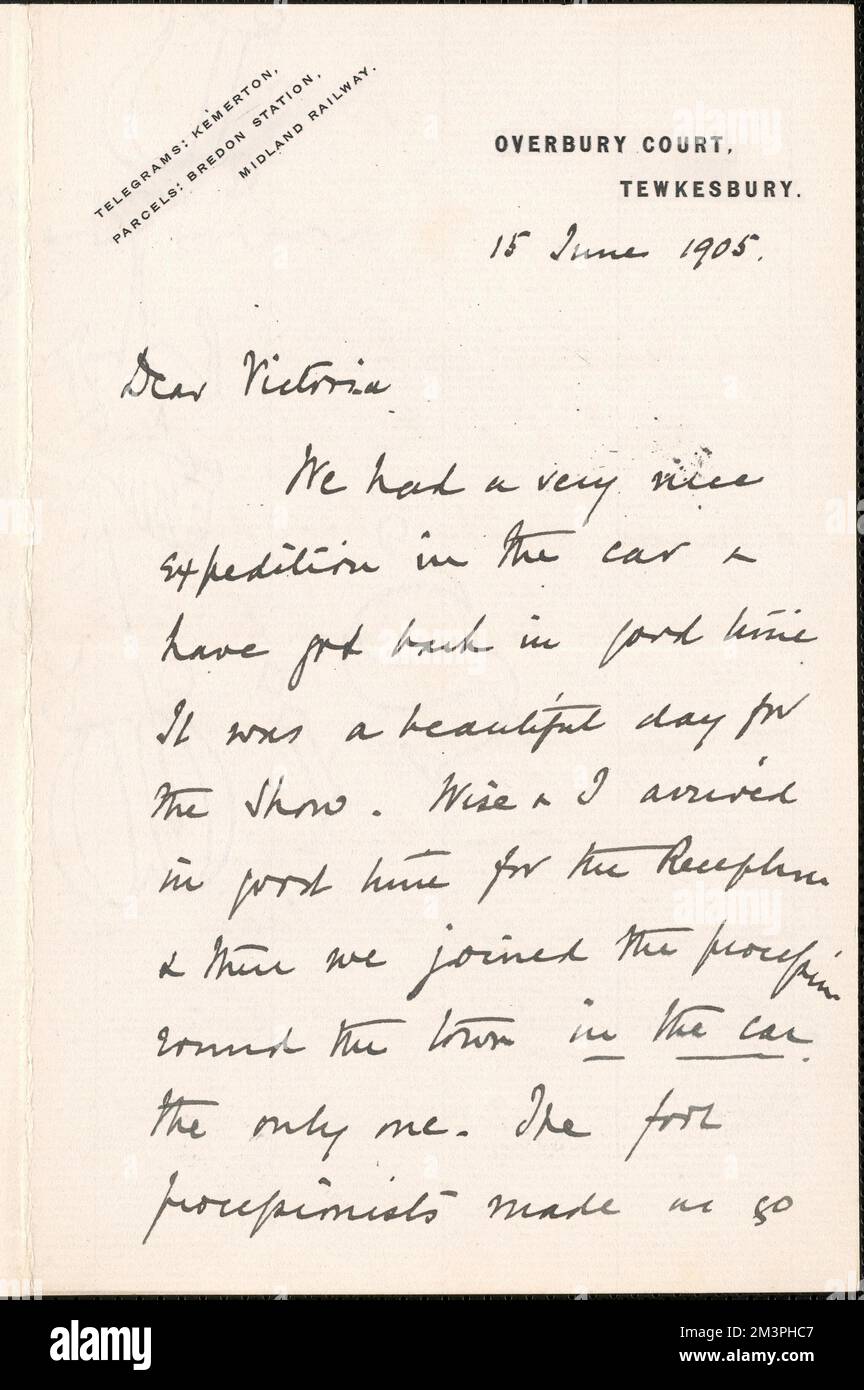 TELEGRAMS: KEMERTON,
PARCELS: BREDON STATION,
MIDLAND RAILWAY.
OVERBURY COURT,
TEWKESBURY.
15 June 1905.
Dear Victoria
We had a very nice
expedition in the car &
have got back in good time
It was a beautiful day for
the Show. Wise & I arrived
in good time for the Reception
& then we joined the procession
round the town in the car
the only one. The foot
processionists made us go
alamy
Image ID: 2M3PHC7
www.alamy.com